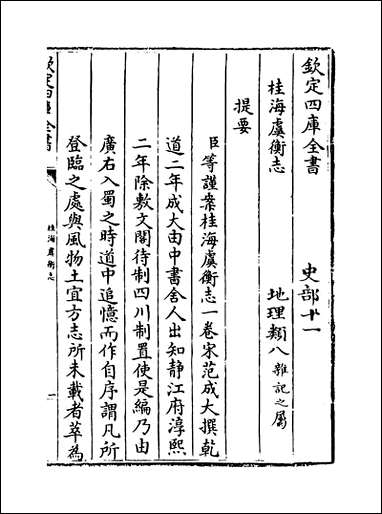 欽定四庫全書　史部十一
桂海虞衡志　地理類八雜記之屬
提要
臣等謹案桂海虞衡志一卷宋范成大撰乾
道二年成大由中書舍人出知静江府淳熙
二年除敷文閣待制四川制置使是編乃由
廣右入蜀之時道中追憶而作自序謂凡所
登臨之處與風物土宜方志所未載者萃為
欽定四庫全書
桂海虞衡志
一